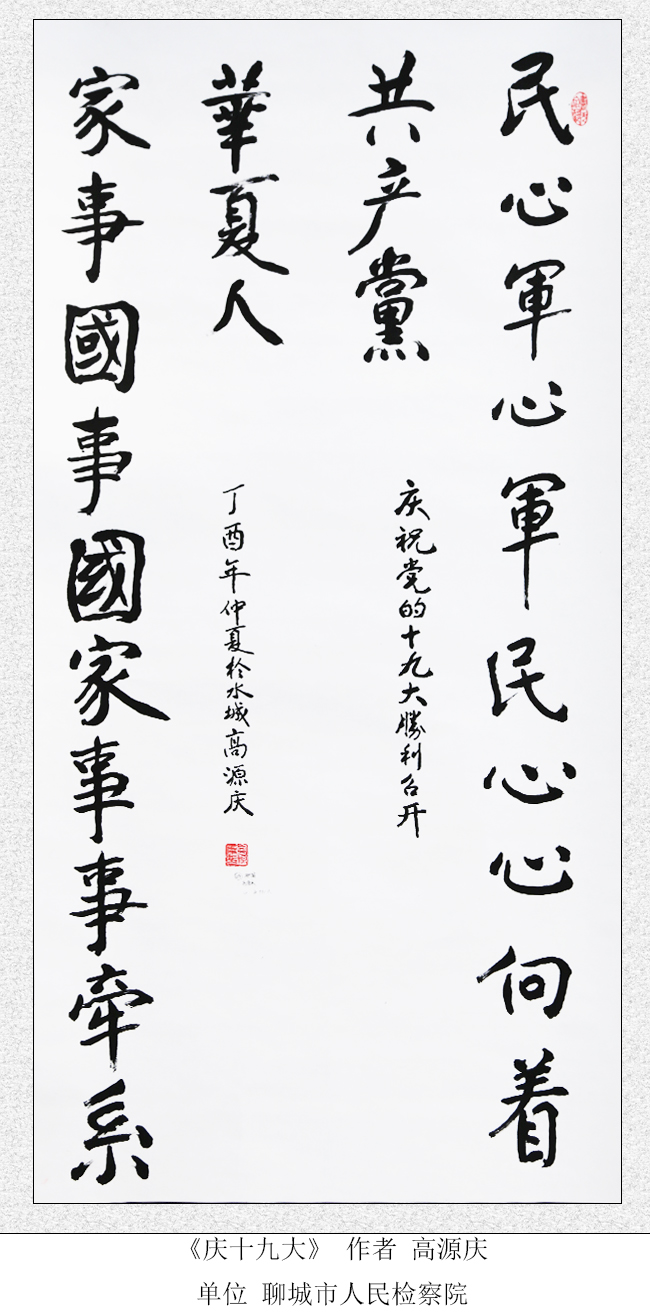 民心軍心軍民心心向着
共产黨
庆祝党的十九大勝利召开
家事國事國家事事牵系
華夏人
丁酉年仲夏於水城高源庆
《庆十九大》 作者 高源庆
单位 聊城市人民检察院